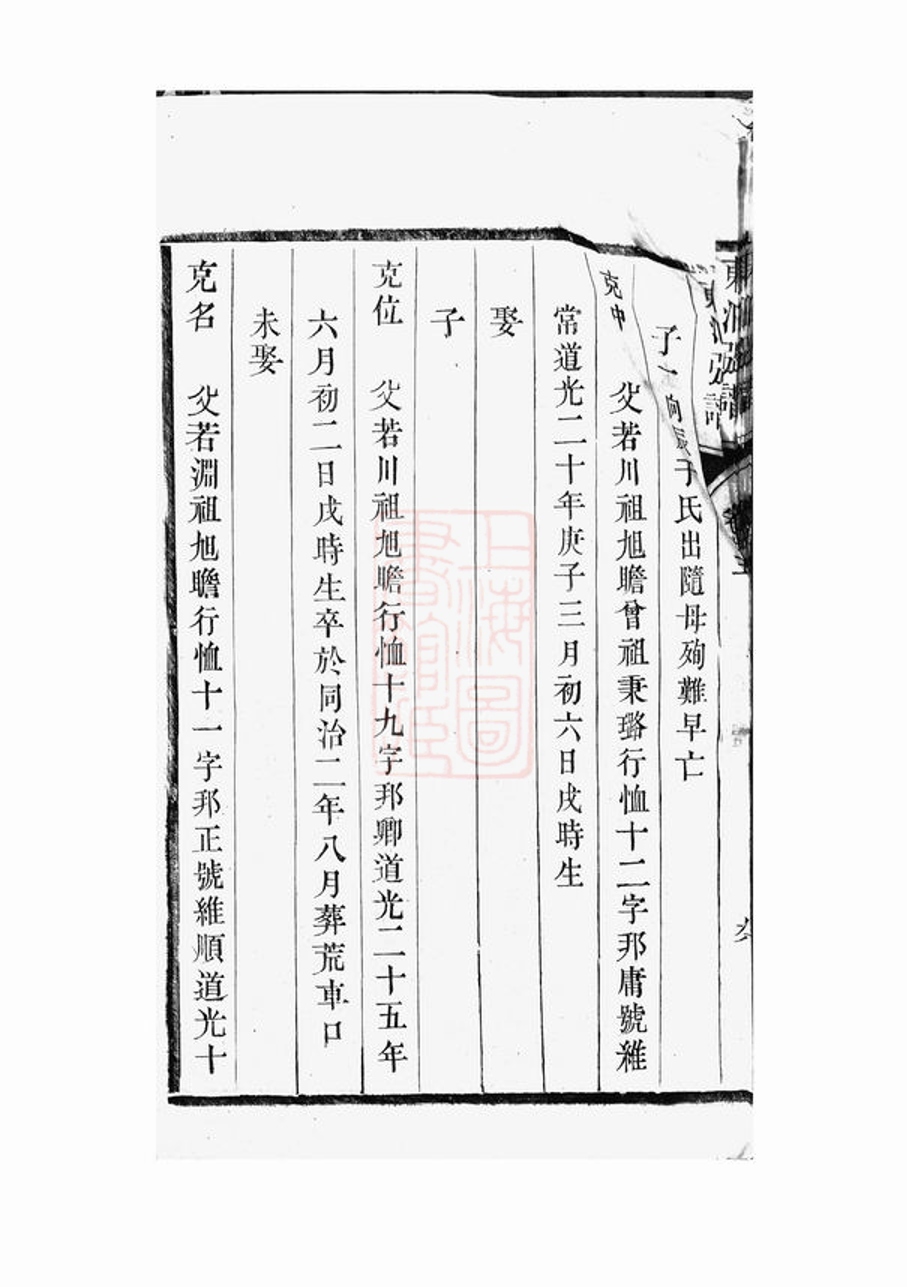 子一
于氏出隨母殉難早亡
克中 父若川祖旭瞻曾祖秉璐行恤十二字邦庸號維
常道光二十年庚子三月初六日戌時生
娶
子
克位 父若川祖旭瞻行恤十九字邦卿道光二十五年
六月初二日戌時生卒於同治二年八月葬荒車口
未娶
克名 父若淵祖旭瞻行恤十一字邦正號維順道光十
上海圖書館藏